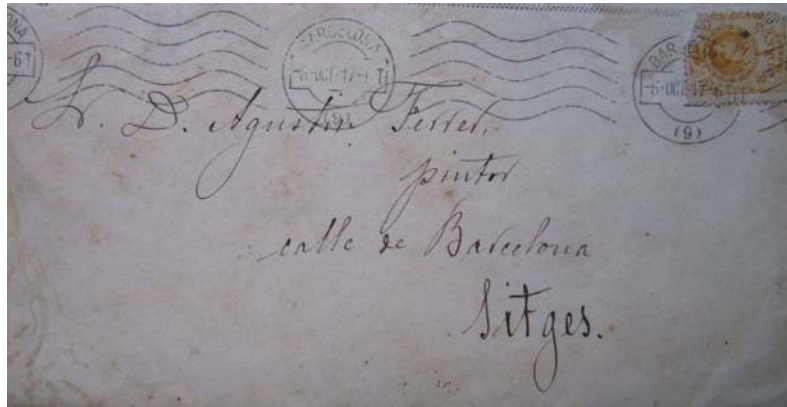 BARCELONA
-6·OCT·17-6T
(9)
BAR
-6·OCT·17-6T
(9)
ONA
-6T
S. D. Agustin Ferrer,
pintor
calle de Barcelona
Sitges.